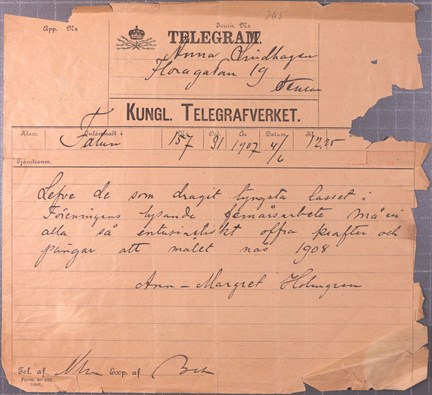 App. No Journ. No
TELEGRAM.
Anna Lindhagen
Floragatan 19
KUNGL. TELEGRAFVERKET.
Klass Inlämnadt i Ord Datum Kl
Falun 157 31 1907 4/6 12,25
Tjänsteanm.
Lefve de som dragit tyngsta lasset i
Föreningens lysande femårsarbete må vi
alla så entusiastiskt offra krafter och
pängar att målet nås 1908
Ann-Margret Holmgren
Tel. af Exp. af